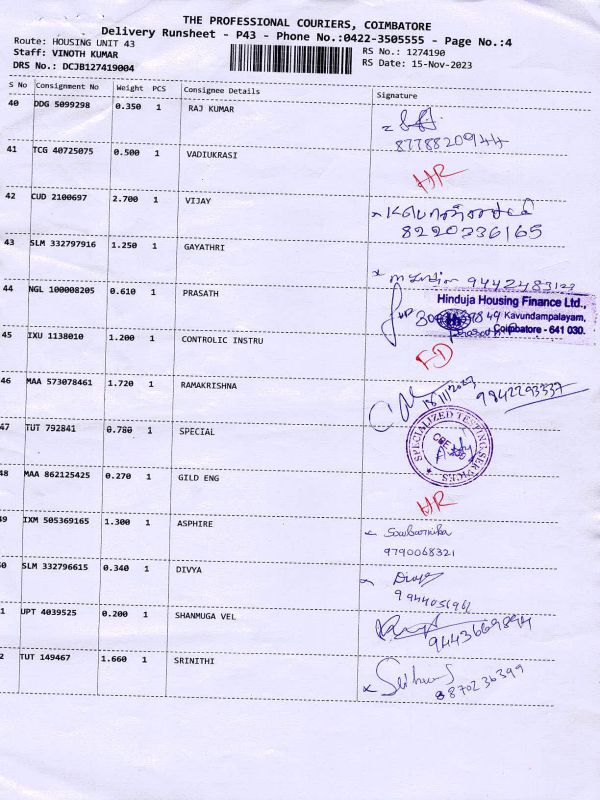 THE PROFESSIONAL COURIERS, COIMBATORE
Delivery Runsheet - P43 - Phone No.:0422-3505555 - Page No.:4
Route: HOUSING UNIT 43
RS No.: 1274190
Staff: VINOTH KUMAR
RS Date: 15-Nov-2023
DRS No.: DCJB127419004
S No Consignment No Weight PCS Consignee Details Signature
40 DDG 5099298 0.350 1 RAJ KUMAR
8778820944
41 TCG 40725075 0.500 1 VADIUKRASI
HR
42 CUD 2100697 2.700 1 VIJAY
8220236165
43 SLM 332797916 1.250 1 GAYATHRI
44 NGL 100008205 0.610 1 PRASATH
Hinduja Housing Finance Ltd.,
Kavundampalayam,
Coimbatore - 641 030.
45 IXU 1138010 1.200 1 CONTROLIC INSTRU
FD
46 MAA 573078461 1.720 1 RAMAKRISHNA
9842293337
47 TUT 792841 0.780 1 SPECIAL
SPECIALIZED TESTING SERVICES
48 MAA 862125425 0.270 1 GILD ENG
HR
49 IXM 505369165 1.300 1 ASPHIRE
Sowbarnika
9790068321
50 SLM 332796615 0.340 1 DIVYA
Divya
1 UPT 4039525 0.200 1 SHANMUGA VEL
9443669894
2 TUT 149467 1.660 1 SRINITHI
8870236399